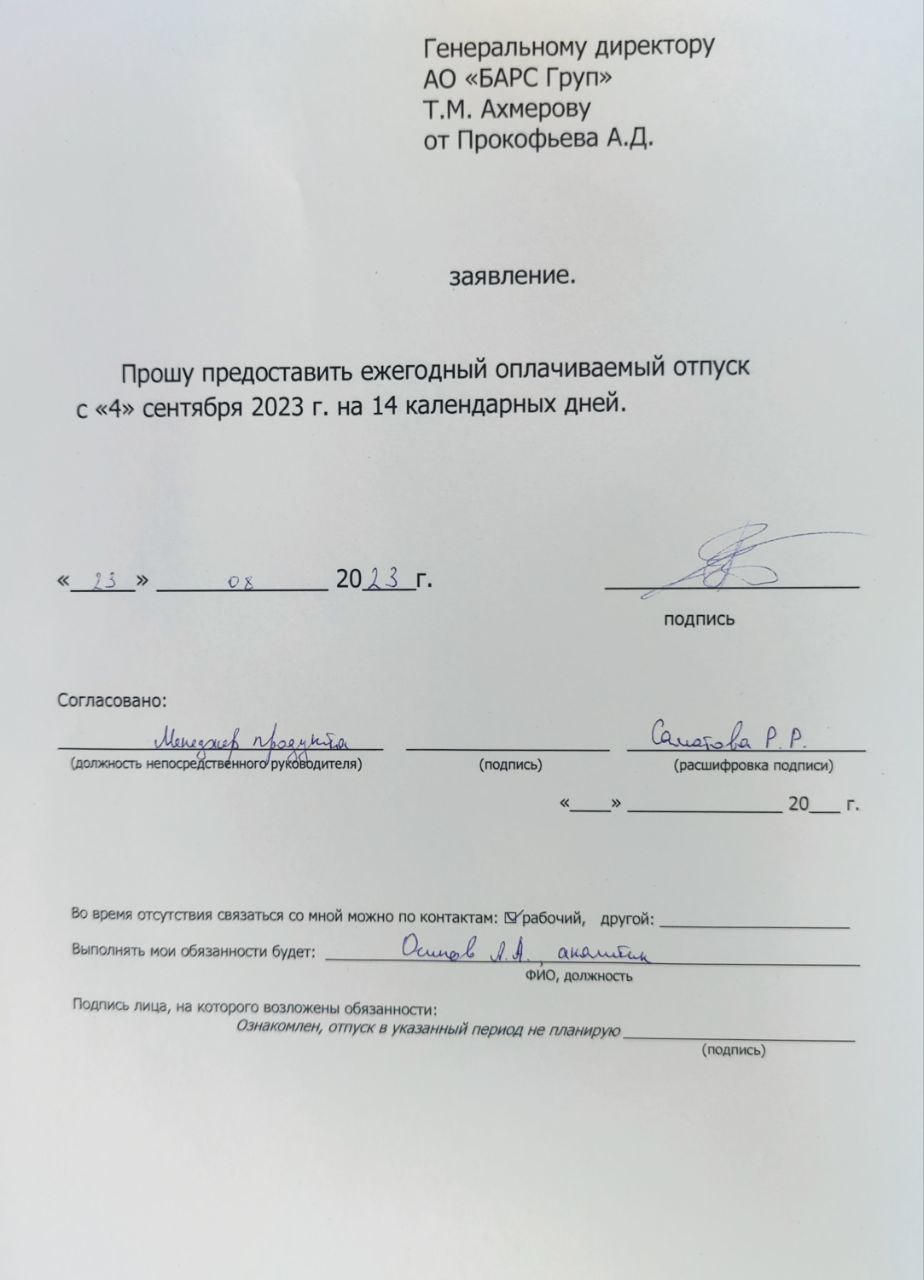 Генеральному директору
АО «БАРС Груп»
Т.М. Ахмерову
от Прокофьева А.Д.
заявление.
Прошу предоставить ежегодный оплачиваемый отпуск
с «4» сентября 2023 г. на 14 календарных дней.
«23» 08 2023 г.
подпись
Согласовано:
Менеджер продукта Саматова Р. Р.
(должность непосредственного руководителя) (подпись) (расшифровка подписи)
«____» ________________ 20___ г.
Во время отсутствия связаться со мной можно по контактам: ☑ рабочий, другой: ____________________
Выполнять мои обязанности будет: Осипов Л.А., аналитик
ФИО, должность
Подпись лица, на которого возложены обязанности:
Ознакомлен, отпуск в указанный период не планирую ________________________
(подпись)